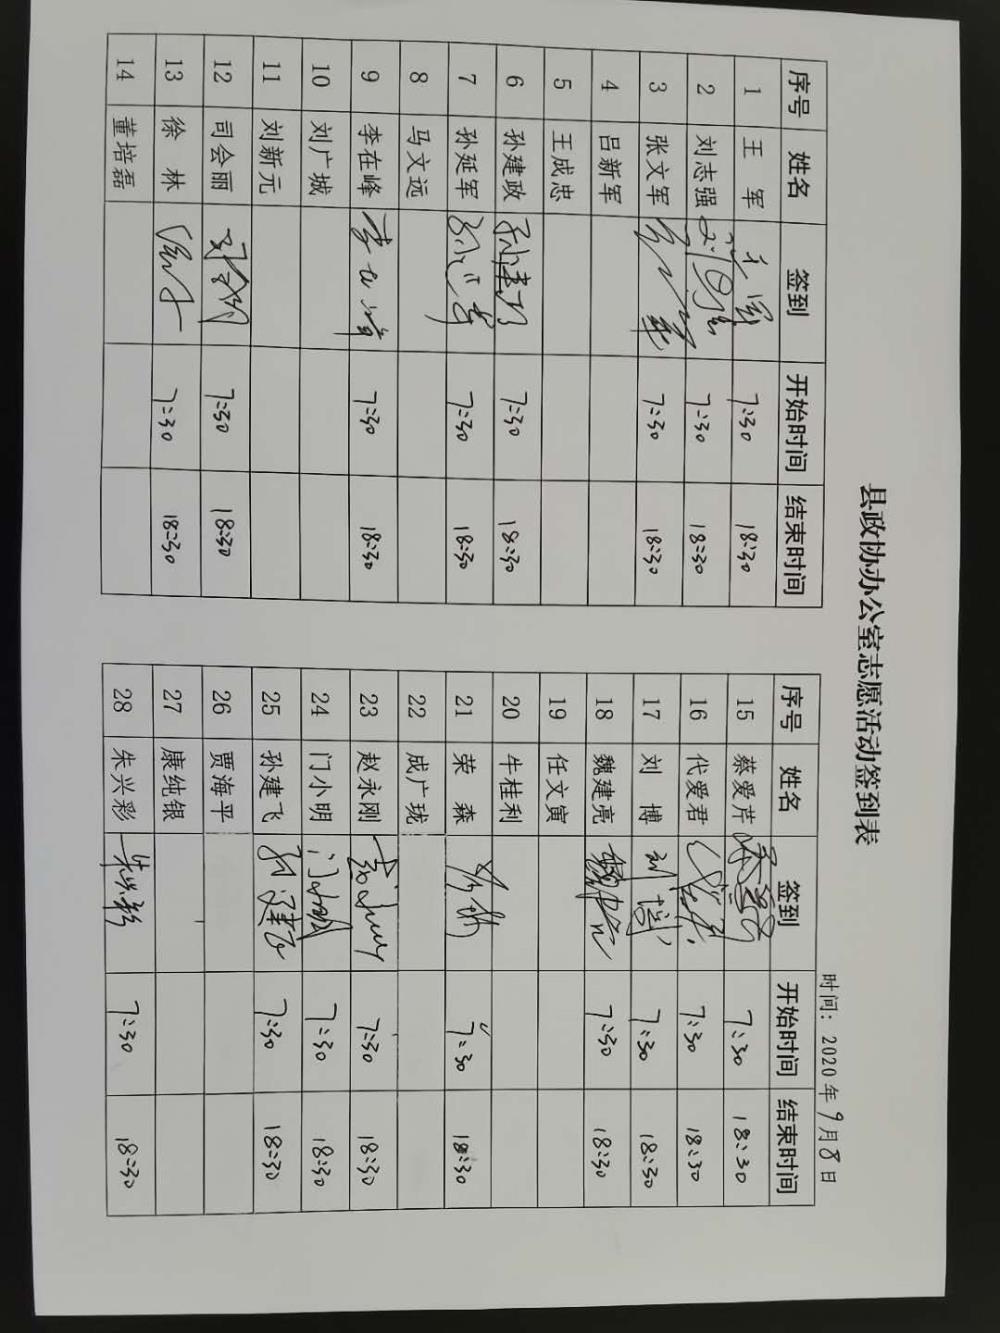 县政协办公室志愿活动签到表
时间：2020年9月8日
序号 姓名 签到 开始时间 结束时间
1 王军 王军 7:30 18:30
2 刘志强 刘志强 7:30 18:30
3 张文军 7:30 18:30
4 吕新军
5 王成忠
6 孙建政 孙建政 7:30 18:30
7 孙延军 孙延军 7:30 18:30
8 马文远
9 李在峰 李在峰 7:30 18:30
10 刘广城
11 刘新元
12 司会丽 司会丽 7:30 18:30
13 徐林 7:30 18:30
14 董培磊
序号 姓名 签到 开始时间 结束时间
15 蔡爱芹 蔡爱芹 7:30 18:30
16 代爱君 代爱君 7:30 18:30
17 刘博 刘博 7:30 18:30
18 魏建亮 魏建亮 7:30 18:30
19 任文寅
20 牛桂利
21 荣森 7:30 18:30
22 成广珑
23 赵永刚 7:30 18:30
24 门小明 门小明 7:30 18:30
25 孙建飞 孙建飞 7:30 18:30
26 贾海平
27 康纯银
28 朱兴彩 朱兴彩 7:30 18:30